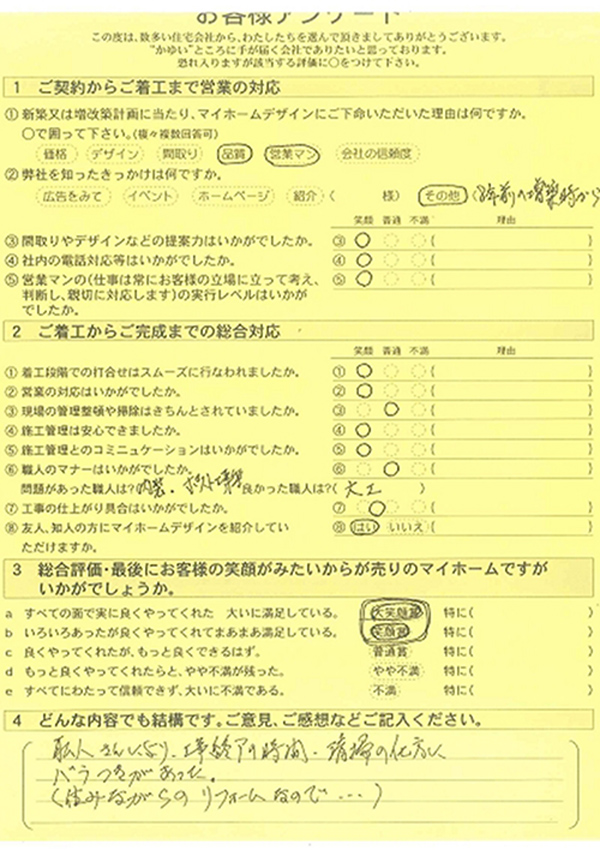 お客様アンケート
この度は、数多い住宅会社から、わたしたちを選んで頂きましてありがとうございます。
"かゆい"ところに手が届く会社でありたいと思っております。
恐れ入りますが該当する評価に〇をつけて下さい。
1 ご契約からご着工まで営業の対応
① 新築又は増改築計画に当たり、マイホームデザインにご下命いただいた理由は何ですか。
〇で囲って下さい。(複々複数回答可)
価格 デザイン 間取り 品質 営業マン 会社の信頼度
② 弊社を知ったきっかけは何ですか。
広告をみて イベント ホームページ 紹介 ( 様) その他 (8年前の増築時から
笑顔 普通 不満 理由
③ 間取りやデザインなどの提案力はいかがでしたか。 ③ ( )
④ 社内の電話対応等はいかがでしたか。 ④ ( )
⑤ 営業マンの(仕事は常にお客様の立場に立って考え、 ⑤ ( )
判断し、親切に対応します)の実行レベルはいかが
でしたか。
2 ご着工からご完成までの総合対応
笑顔 普通 不満 理由
① 着工段階での打合せはスムーズに行なわれましたか。 ① ( )
② 営業の対応はいかがでしたか。 ② ( )
③ 現場の管理整頓や掃除はきちんとされていましたか。 ③ ( )
④ 施工管理は安心できましたか。 ④ ( )
⑤ 施工管理とのコミニュケーションはいかがでしたか。 ⑤ ( )
⑥ 職人のマナーはいかがでしたか。 ⑥ ( )
問題があった職人は?(内装・ 良かった職人は?( 大工 )
⑦ 工事の仕上がり具合はいかがでしたか。 ⑦ ( )
⑧ 友人、知人の方にマイホームデザインを紹介してい ⑧ はい いいえ ( )
ただけますか。
3 総合評価・最後にお客様の笑顔がみたいからが売りのマイホームですが
いかがでしょうか。
a すべての面で実に良くやってくれた 大いに満足している。 大笑顔賞 特に( )
b いろいろあったが良くやってくれてまあまあ満足している。 笑顔賞 特に( )
c 良くやってくれたが、もっと良くできるはず。 普通賞 特に( )
d もっと良くやってくれたらと、やや不満が残った。 やや不満 特に( )
e すべてにわたって信頼できず、大いに不満である。 不満 特に( )
4 どんな内容でも結構です。ご意見、ご感想などご記入ください。
職人さんにより、工事終了の時間・清掃の仕方に
バラつきがあった。
(住みながらのリフォームなので…)